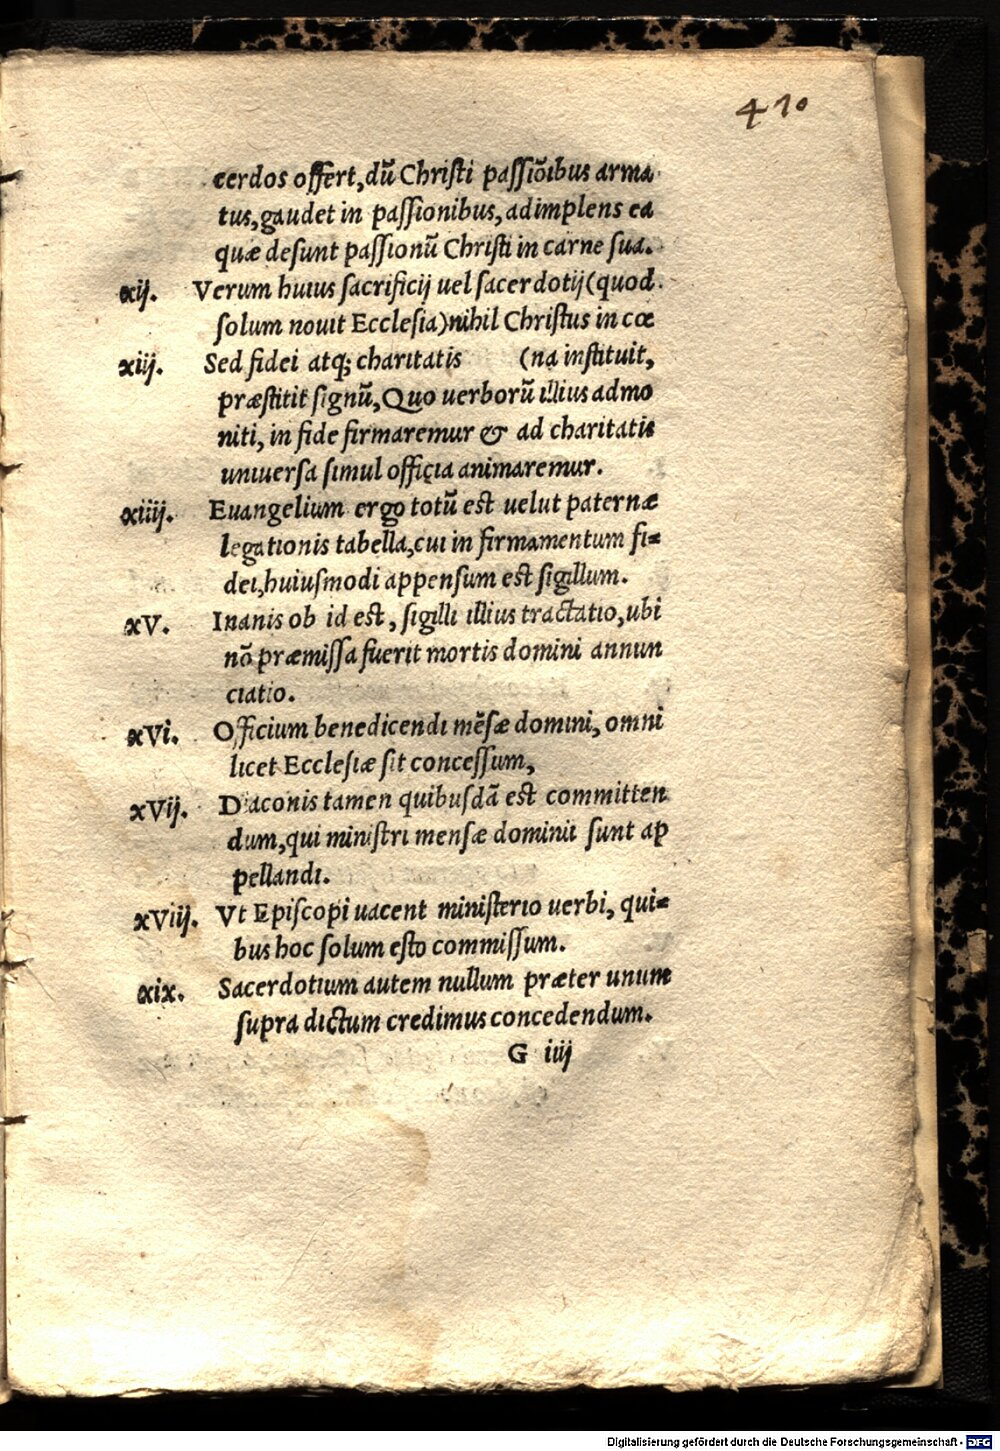 410
cerdos offert,dũ Christi passiõibus arma
tus,gaudet in passionibus,adimplens ea
quæ desunt passionũ Christi in carne sua.
xij. Verum huius sacrificij uel sacerdotij(quod
solum nouit Ecclesia)nihil Christus in cœ
xiij. Sed fidei atq; charitatis (na instituit,
præstitit signũ,Quo uerborũ illius admo
niti, in fide firmaremur & ad charitatis
uniuersa simul officia animaremur.
xiiij. Euangelium ergo totũ est uelut paternæ
legationis tabella,cui in firmamentum fi=
dei,huiusmodi appensum est sigillum.
xV. Inanis ob id est, sigilli illius tractatio,ubi
nõ præmissa fuerit mortis domini annun
ciatio.
xVi. Officium benedicendi mẽsæ domini, omni
licet Ecclesiæ sit concessum,
xVij. Diaconis tamen quibusdã est committen
dum,qui ministri mensæ dominii sunt ap
pellandi.
xViij. Vt Episcopi uacent ministerio uerbi, qui=
bus hoc solum esto commissum.
xix. Sacerdotium autem nullum præter unum
supra dictum credimus concedendum.
G iiij
Digitalisierung gefördert durch die Deutsche Forschungsgemeinschaft - DFG